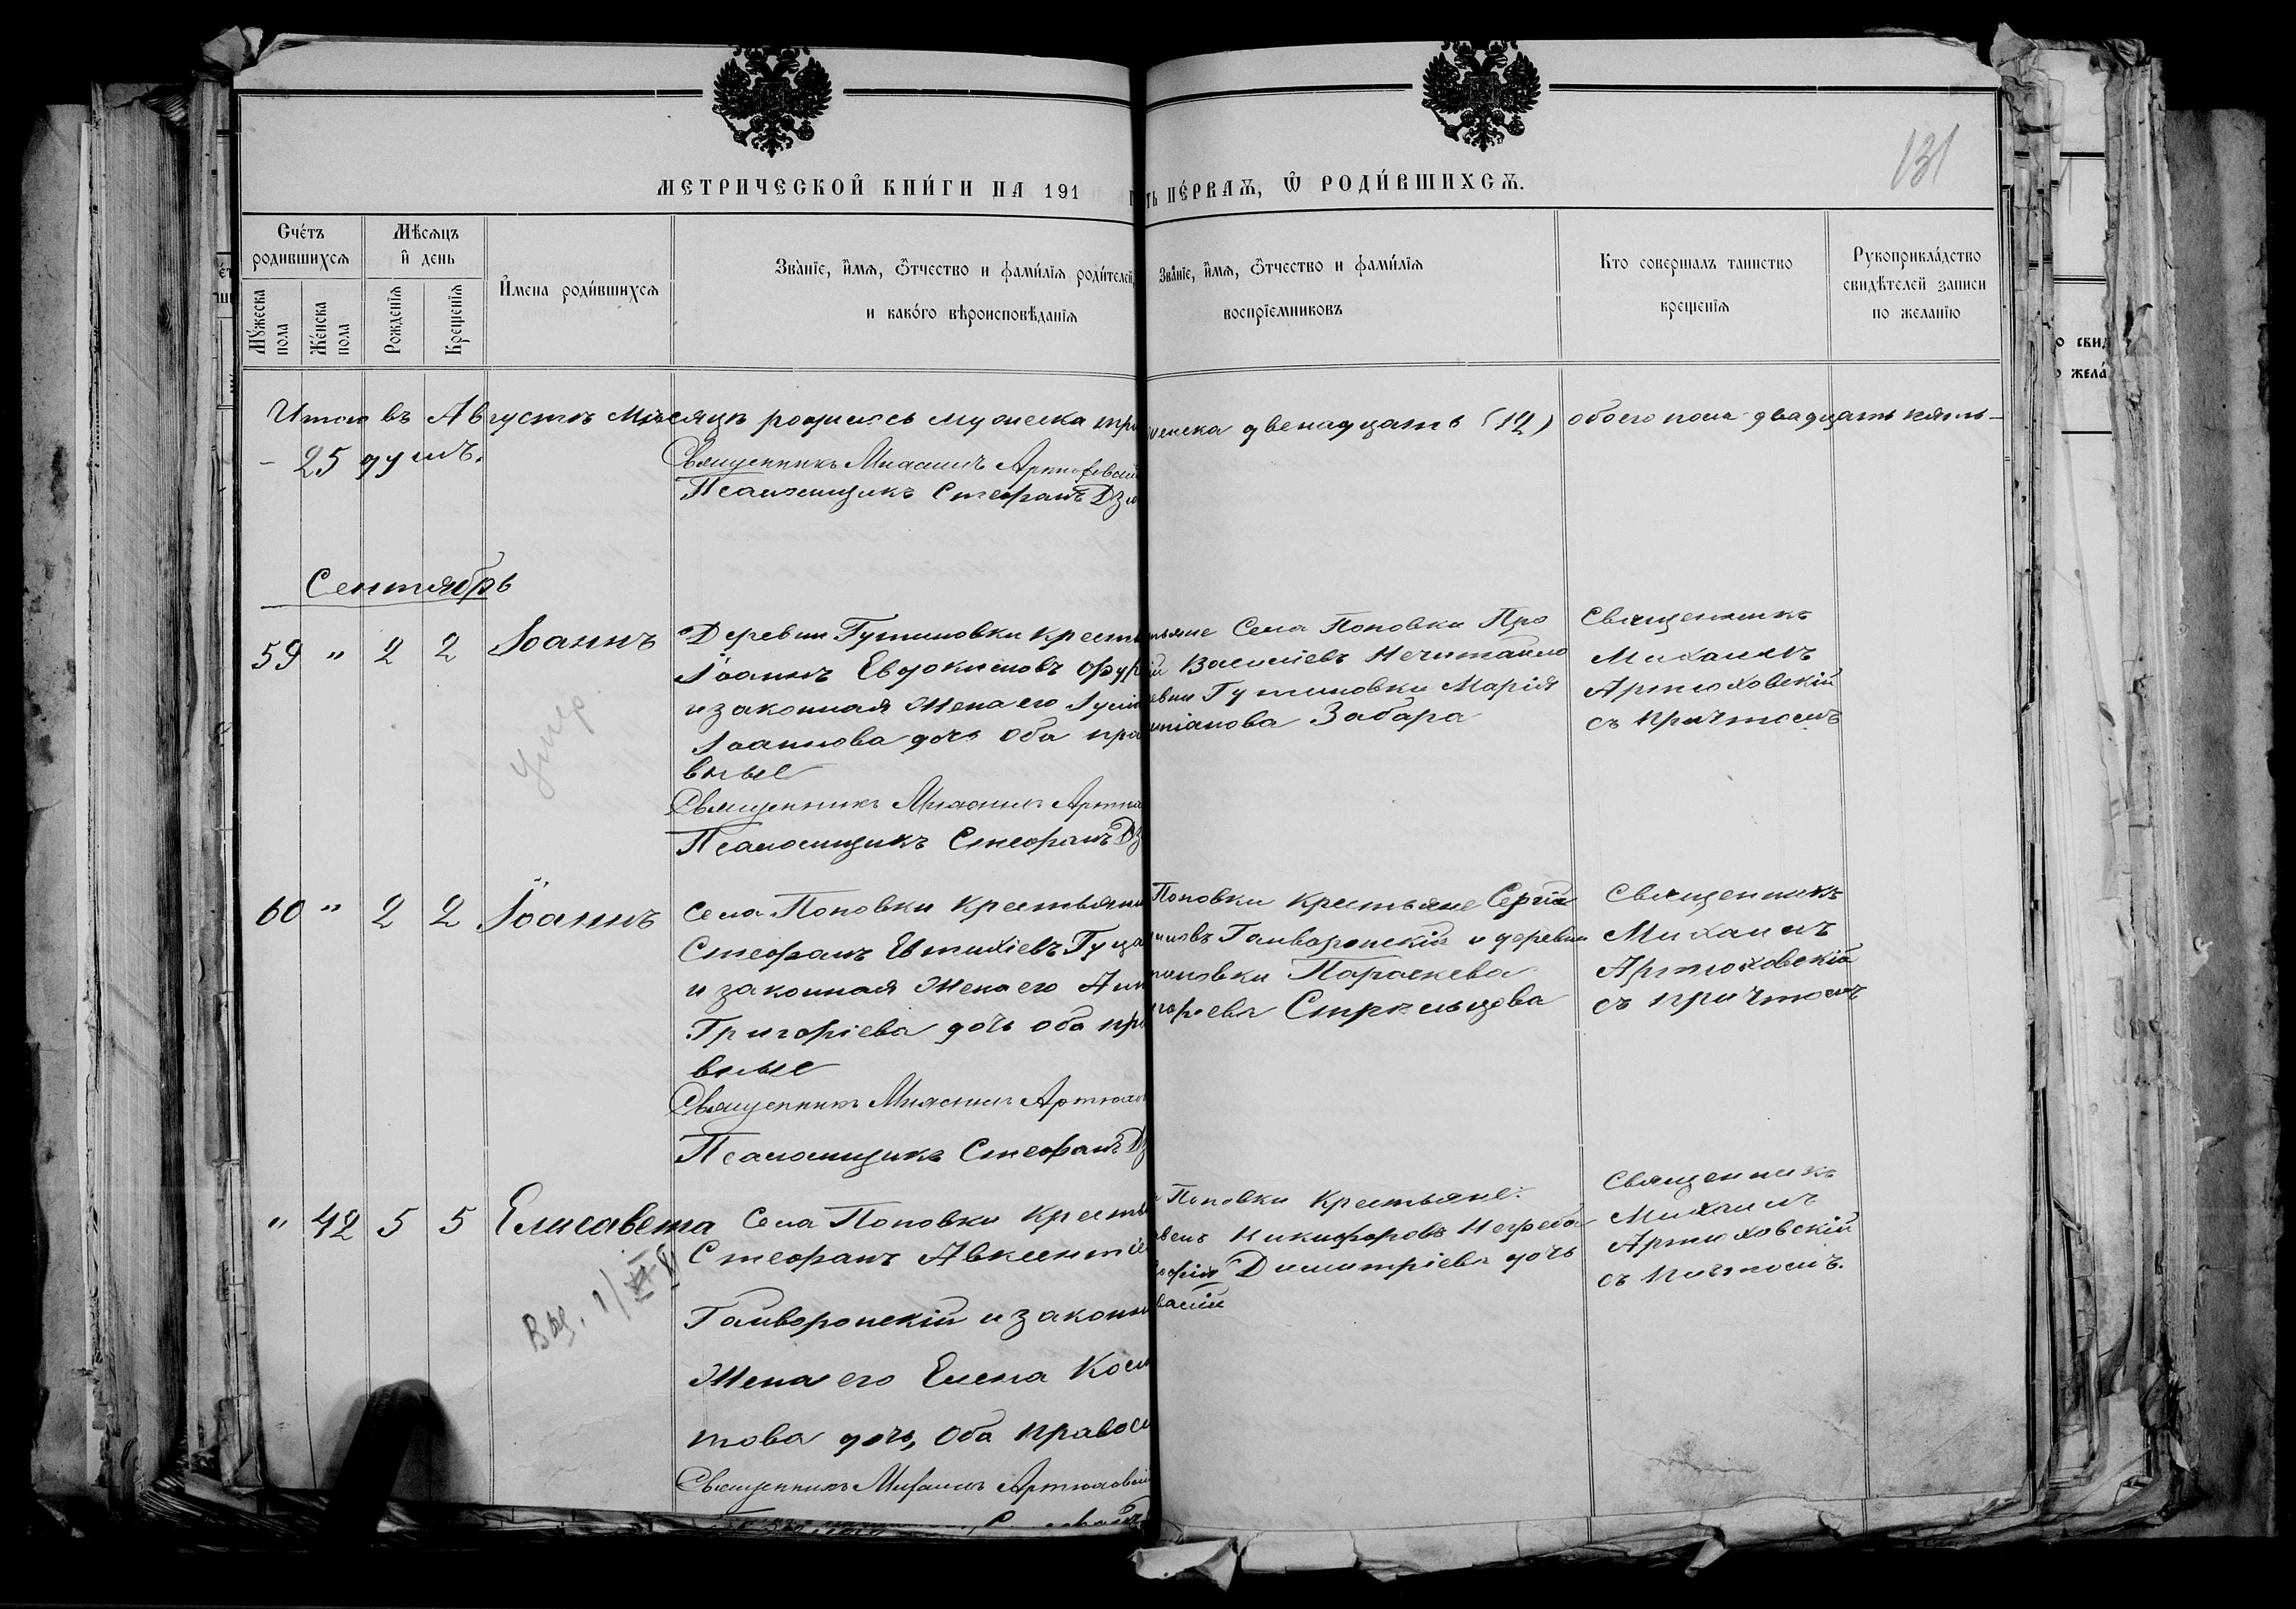 131
МЕТРИЧЕСКОЙ КНИ́ГИ НА 191
ть ПЕ́РВАѦ, Ѿ РОДИ́ВШИХСѦ.
Сче́тъ родившихсѧ
Мѣсѧцъ и день
Му́жеска пола
Же́нска пола
Рожденїѧ
Крещенїѧ
И҆мена роди́вшихсѧ
Зва́нїе, и҆́мѧ, ѻ҆́тчество и фами́лїѧ роди́телей,
и како́го вѣроисповѣданїѧ
Зва́нїе, и҆́мѧ, ѻ҆́тчество и фами́лїѧ
воспрїемниковъ
Кто совершалъ таинство
крещенїѧ
Рукоприкла́дство
свидѣтелей записи
по желанїю
Итого въ Августѣ Мѣсяцѣ родилось мужеска три
женска двенадцать (12) обоего пола двадцать пять -
- 25 душъ.
Священникъ Михаилъ Артюховскій
Псаломщикъ Стефанъ Дзю
Сентябрь
59 " 2 2 Іоаннъ
Деревни Гутиновки крест
Іоаннъ Евдокимовъ Фур
и законная жена его
Іоаннова дочь оба пра
вные
Священникъ Михаилъ Артюх
Псаломщикъ Стефанъ Дз
умер
тьяне Села Поповки Про
ій Васильевъ Нечитайло
евни Гутиновки Марія
иніанова Забара
Священникъ
Михаилъ
Артюховскій
съ причтомъ
60 " 2 2 Іоаннъ
Села Поповки крестьянин
Стефанъ Евтихіевъ Гуца
и законная жена его Анн
Григоріева дочь оба пр
вные
Священникъ Михаилъ Артюхов
Псаломщикъ Стефанъ Дз
Поповки крестьяне Сергій
Гайворонскій и деревни
тиновки Параскева
игорьева Стрельцова
Священникъ
Михаилъ
Артюховскій
съ причтомъ
" 42 5 5 Елисавета
Села Поповки крестья
Стефанъ Авксентіе
Гайворонскій и законн
жена его Елена Косм
това дочь, оба правосл
Священникъ Михаилъ Артюховскій
Поповки крестьяне:
Никифоровъ Негреба
офія Димитріева дочь
Священникъ
Михаилъ
Артюховскій
съ причтомъ.